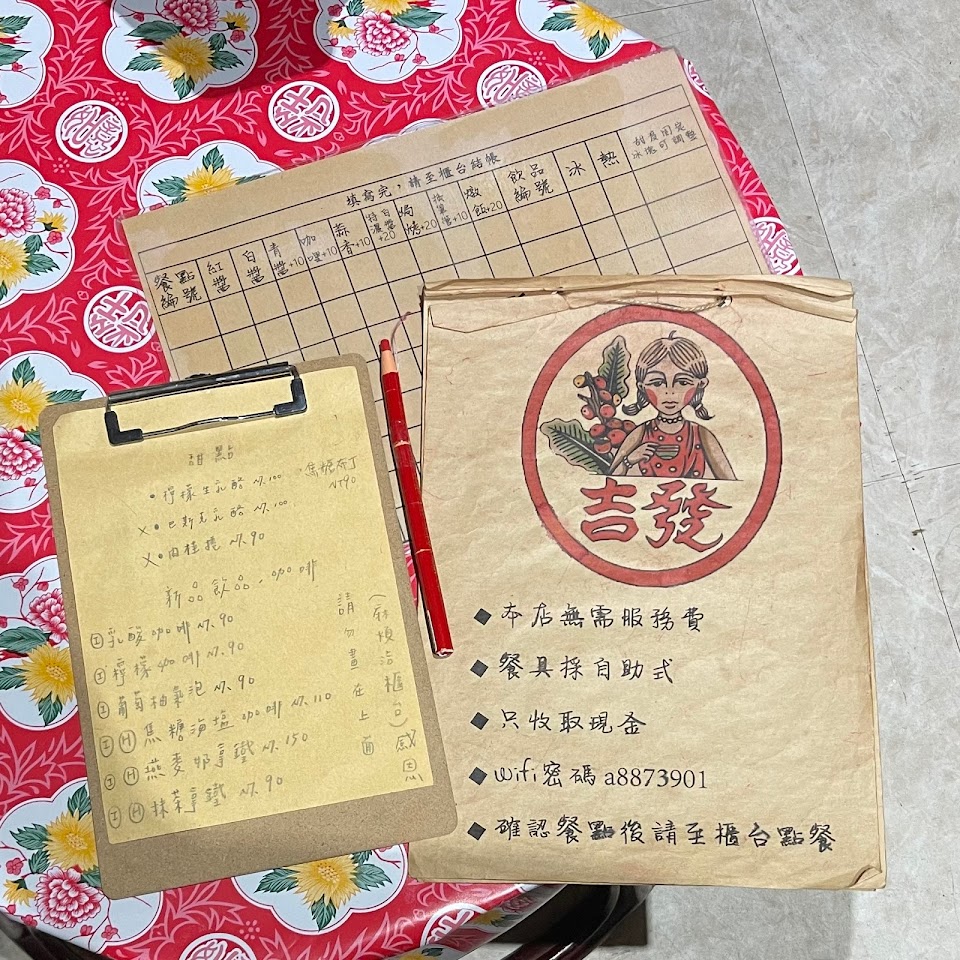 填寫完，請至櫃台結帳
餐點編號
紅醬
白醬
青醬+10
咖哩+10
蒜香+10
特濃白醬+20
焗烤+20
燉飯+20
飲品編號
冰
熱
甜度固定
冰塊可調整
吉發
◆本店無需服務費
◆餐具採自助式
◆只收取現金
◆Wifi密碼 a8873901
◆確認餐點後請至櫃台點餐
甜點
•檸檬生乳酪 NT.100
焦糖布丁
NT90
X•巴斯克乳酪 NT.100
X•肉桂捲 NT.90
新品飲品.咖啡
Ⓘ乳酸咖啡 NT.90
Ⓘ檸檬咖啡 NT.90
Ⓘ葡萄柚氣泡 NT.90
ⒾⒽ焦糖海塩咖啡 NT.110
ⒾⒽ燕麥奶拿鐵 NT.150
ⒾⒽ抹茶拿鐵 NT.90
請勿畫在上面
櫃台）感恩